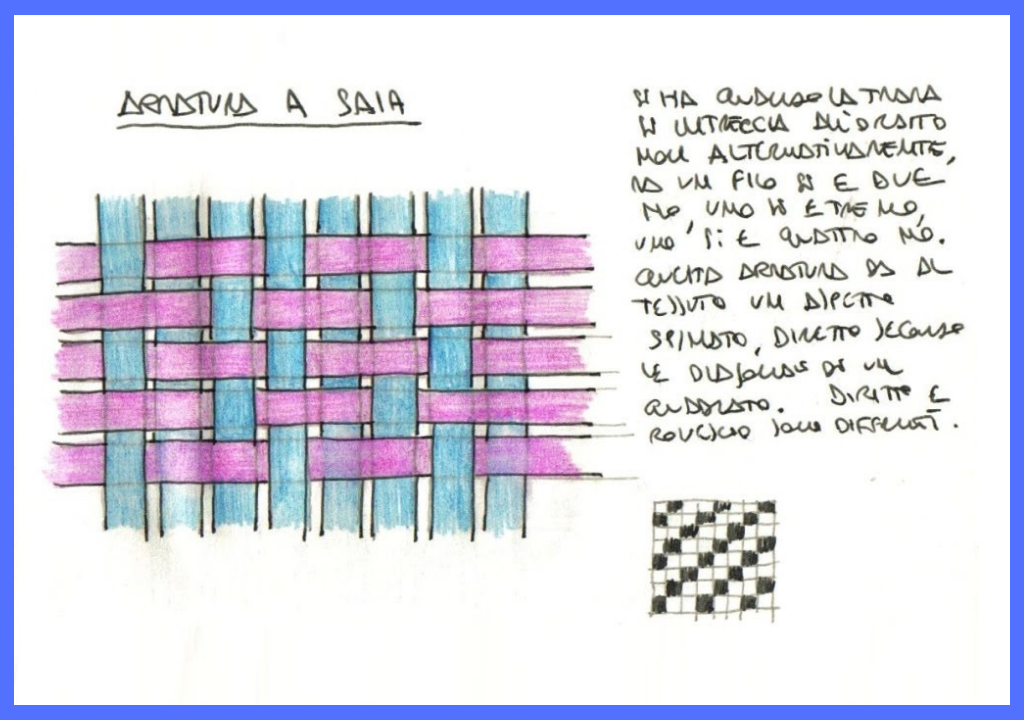 ARMATURA A SAIA
SI HA QUANDO LA TRAMA
SI INTRECCIA ALL'ORDITO
NON ALTERNATIVAMENTE,
MA UN FILO SI E DUE
NO, UNO SI E TRE NO,
UNO SI E QUATTRO NO.
QUESTA ARMATURA DA AL
TESSUTO UN ASPETTO
SPINATO, DIRETTO SECONDO
LE DIAGONALI DI UN
QUADRATO. DIRITTO E
ROVESCIO SONO DIFFERENTI.